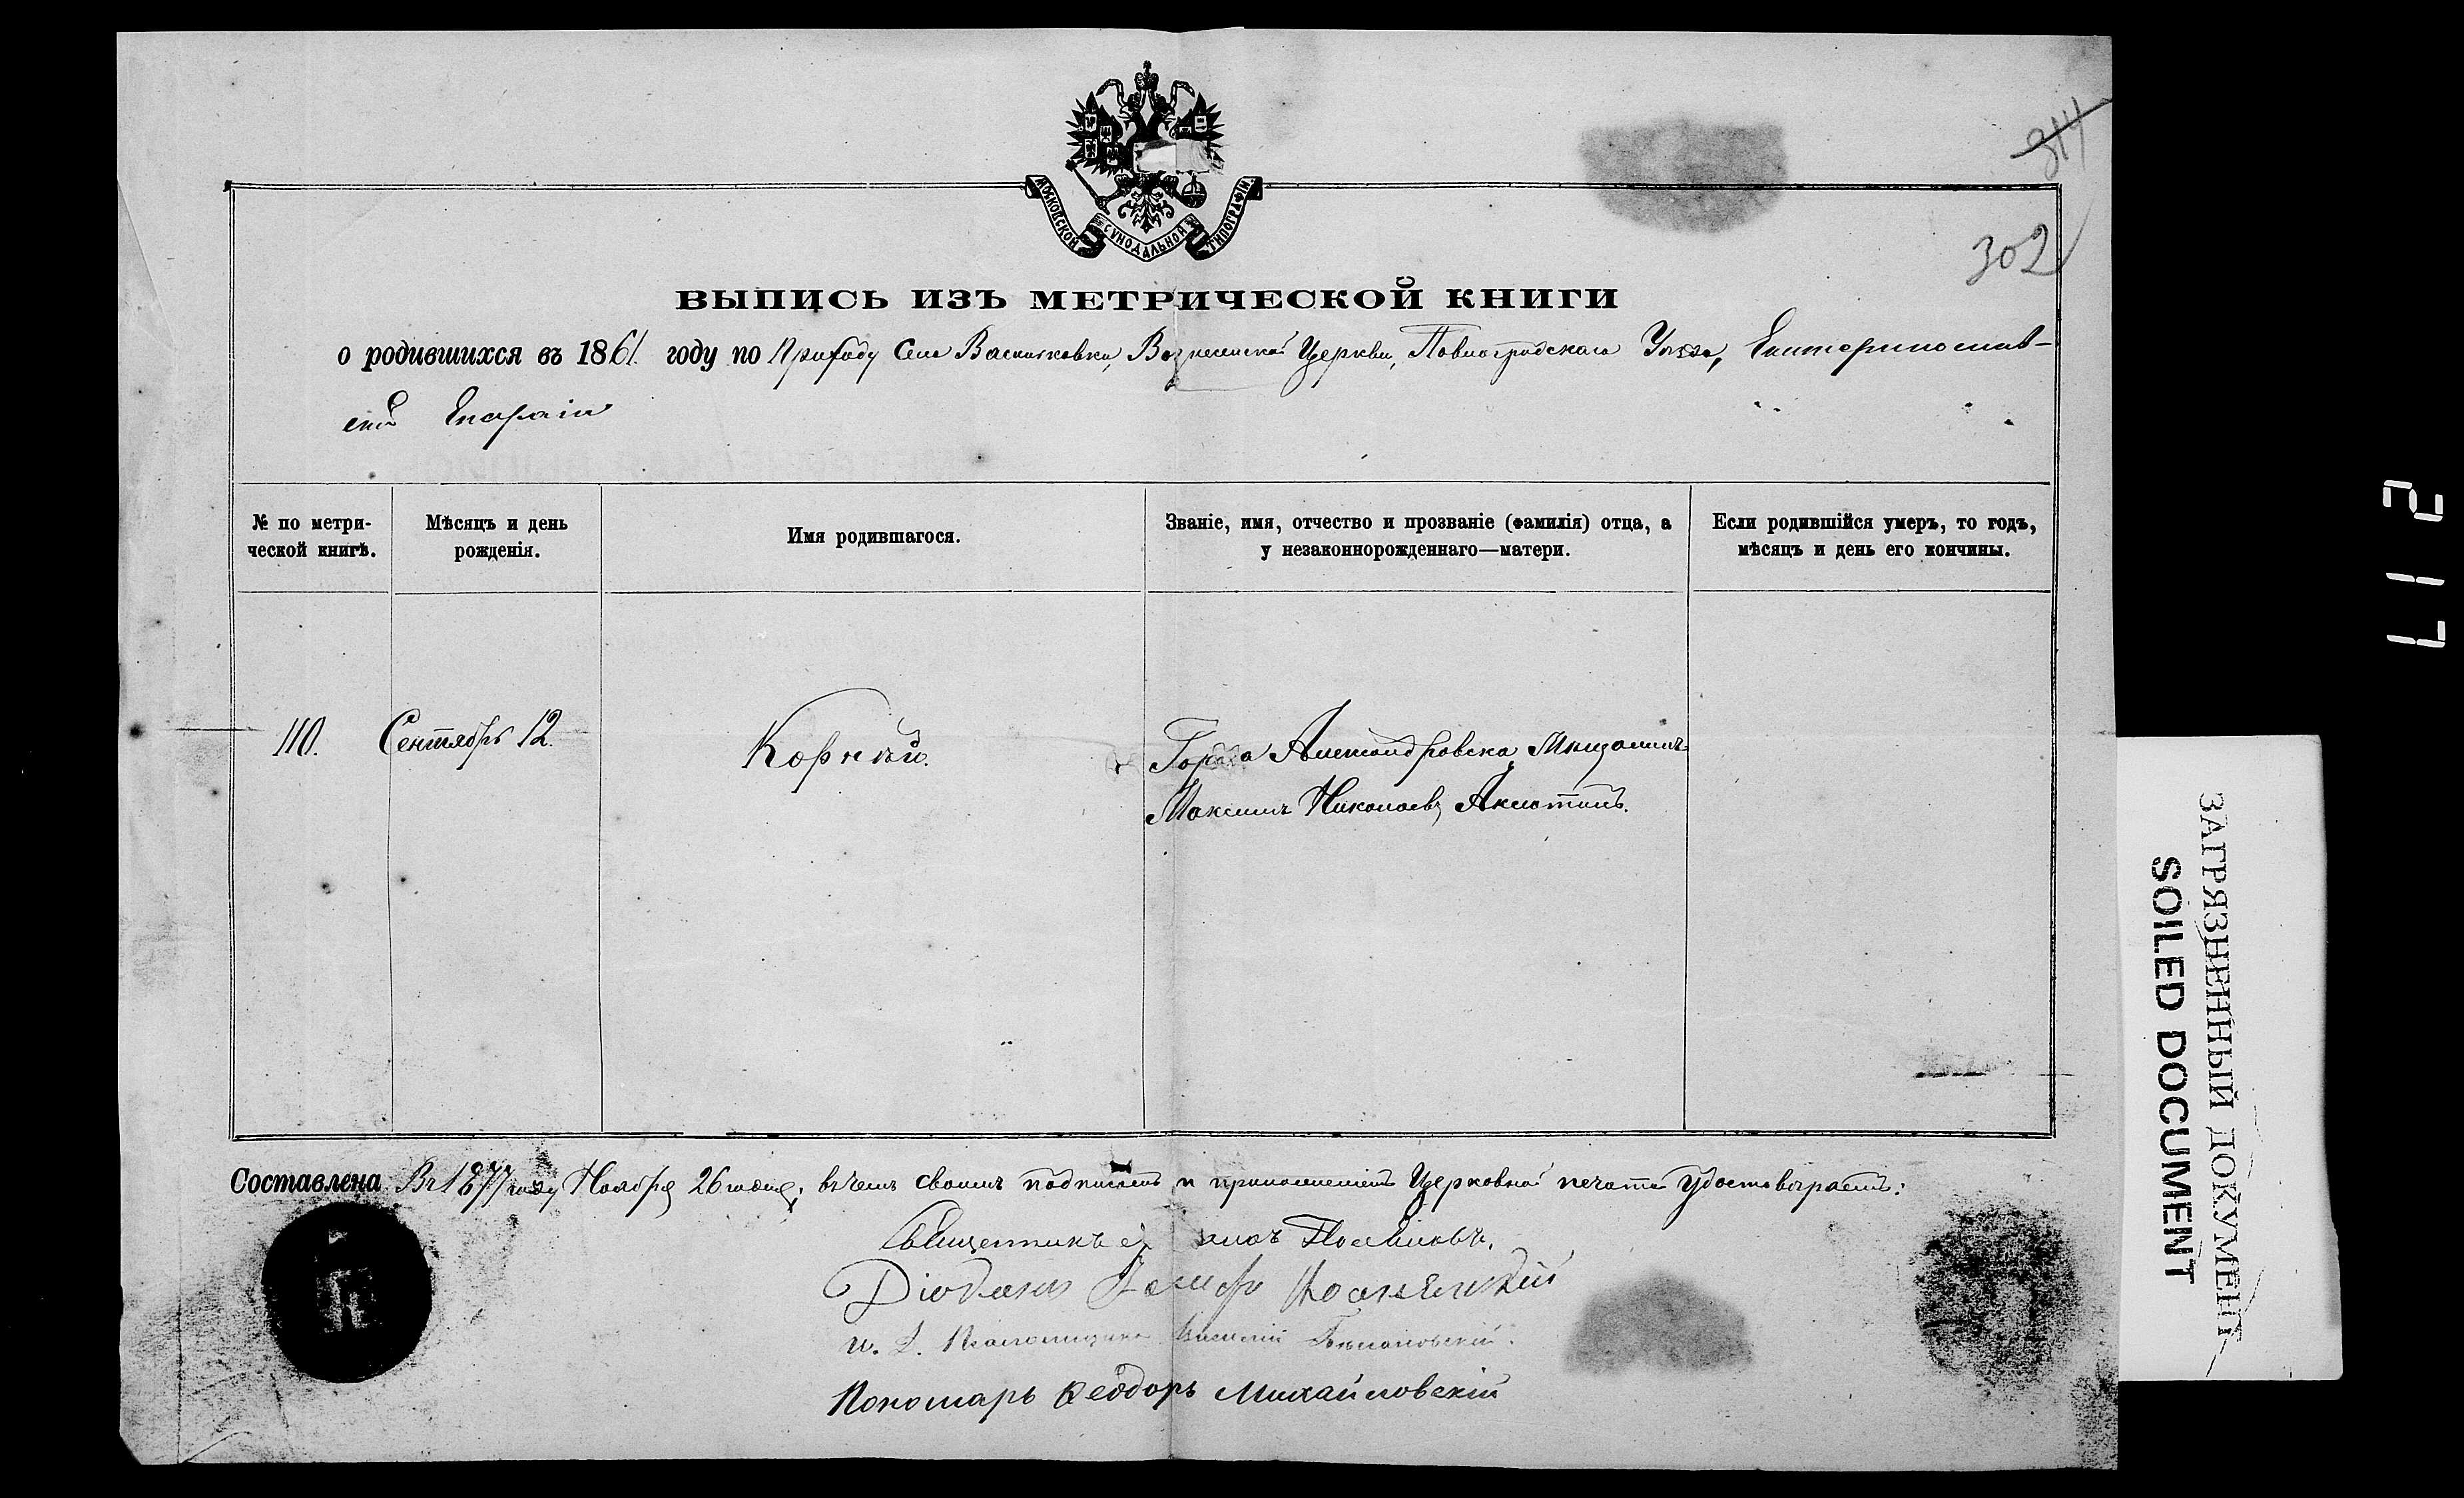 МОСКОВСКОЙ СѴНОДАЛЬНОЙ ТИПОГРАФІИ.
314
302
ВЫПИСЬ ИЗЪ МЕТРИЧЕСКОЙ КНИГИ
о родившихся въ 1861 году по Приходу Села Васильковки, Вознесенской Церкви, Павлоградскаго Уѣзда, Екатеринослав-
ской Епархіи
№ по метри-
ческой книгѣ.
Мѣсяцъ и день
рожденія.
Имя родившагося.
Званіе, имя, отчество и прозваніе (фамилія) отца, а
у незаконнорожденнаго—матери.
Если родившійся умеръ, то годъ,
мѣсяцъ и день его кончины.
110.
Сентябрь 12.
Корнилій.
Города Александровска Мѣщанинъ
Максимъ Николаевъ Аксютинъ.
Составлена Въ 1877 году Ноября 26 дня; въ чемъ своимъ подписомъ и приложеніемъ Церковной печати удостовѣряемъ:
Священникъ
Діаконъ
и. д. Псаломщика Василій
Пономарь Ѳеодоръ Михайловскій
ЗАГРЯЗНЕННЫЙ ДОКУМЕНТ
SOILED DOCUMENT
217